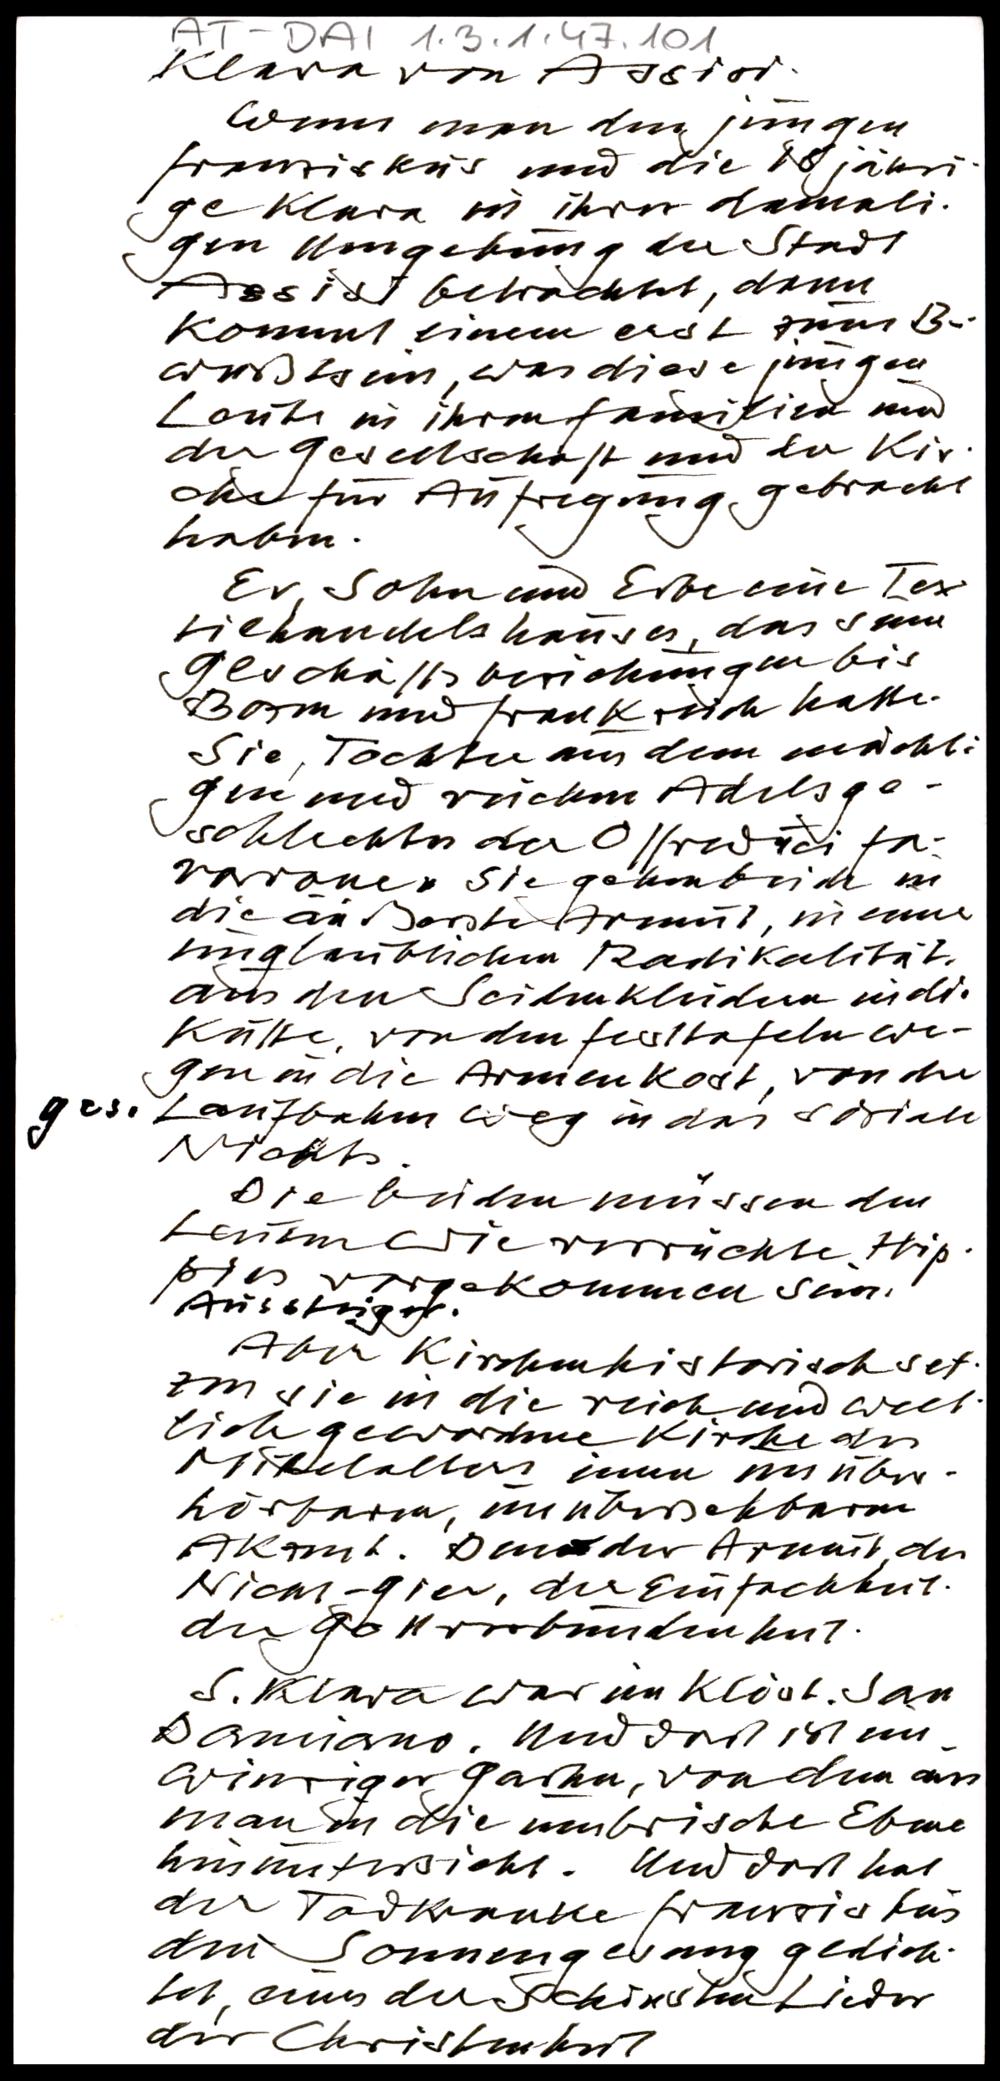 AT-DAI 1.3.1.47.101
Klara von Assisi.
Wenn man den jungen
Franziskus und die 18 jähri-
ge Klara in ihrer damali-
gen Umgebung der Stadt
Assisi betrachtet, dann
kommt einem erst zum Be-
wußtsein, was diese jungen
Leute in ihren Familien und
der Gesellschaft und der Kir-
che für Aufregung gebracht
haben.
Er, Sohn und Erbe eine Tex-
tilhandelshauses, das seine
Geschäftsbeziehungen bis
Bozen und Frankreich hatte.
Sie, Tochter aus dem mächti-
gen und reichen Adelsge-
schlechter der Offreduci fa-
varrone. Sie gehen beide in
die äußerste Armut, in einer
unglaublichen Radikalität.
aus den Seidenkleidern in di.
Kutte, von den Festtafeln we-
gen in die Armenkost, von der
ges. Laufbahn weg in das soziale
Nichts.
Die beiden müssen den
Leuten wie verrückte Hip-
pies vorgekommen sein.
Aussteiger.
Aber kirchenhistorisch set-
zen sie in die reich und welt-
lich gewordene Kirche des
Mittelalters einen unüber-
hörbaren, unübersehbaren
Akzent. Den der Armut, der
Nicht-gier, der Einfachheit.
der Gottverbundenheit.
S. Klara war im Klost. San
Damiano. Und dort ist ein
winziger Garten, von dem aus
man in die umbrische Ebene
hinuntersieht. Und dort hat
der Todkranke Franziskus
den Sonnengesang gedich-
tet, eines der Schönsten Lieder
der Christenheit